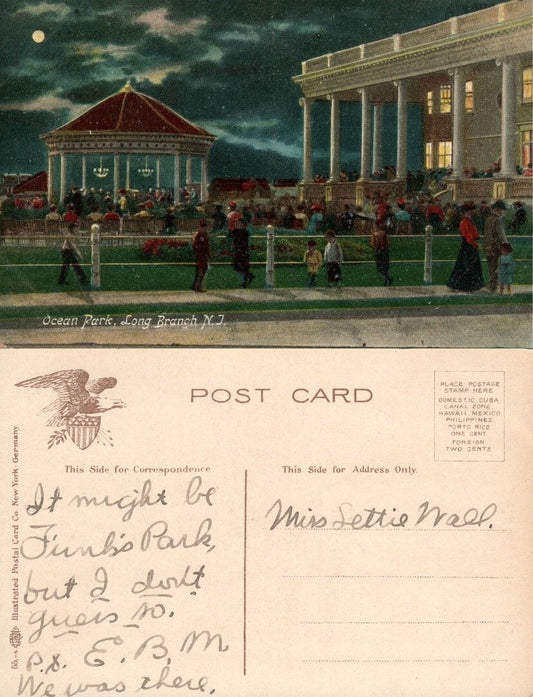 Ocean Park, Long Branch N.J.
POST CARD
PLACE POSTAGE
STAMP HERE
DOMESTIC, CUBA,
CANAL ZONE,
HAWAII, MEXICO
PHILIPPINES
PORTO RICO
ONE CENT
FOREIGN
TWO CENTS
Illustrated Postal Card Co. New York - Germany
This Side for Correspondence
It might be
Funk's Park,
but I don't
guess so.
P.S. E. B. M.
We was there.
This Side for Address Only.
Miss Lettie Wall.